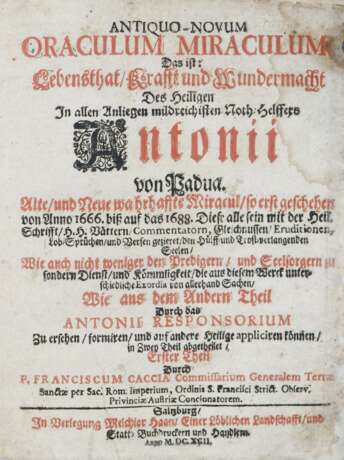 ANTIQUO-NOVUM
ORACULUM MIRACULUM
Das ist:
Lebensthat/Krafft und Wundermacht
Des Heiligen
In allen Anliegen mildreichisten Noth-Helffers
Antonii
von Padua.
Alte/und Neue wahrhaffte Miracul/so erst geschehen
von Anno 1666. biß auf das 1688. Diese alle sein mit der Heil.
Schrifft/H.H. Vättern, Commentatorn, Gleichnussen/Eruditionen,
Lob-Sprüchen/und Versen gezieret/den Hülff-und Trost-verlangenden
Seelen/
Wie auch nicht weniger den Predigern/und Seelsorgern zu
sondern Dienst/und Kömmligkeit/die aus diesem Werck unter-
schiedliche Exordia von allerhand Sachen/
Wie aus dem Andern Theil
Durch das
ANTONII RESPONSORIUM
Zu ersehen/formiren/und auf andere Heilige appliciren können/
in Zwey Theil abgetheilet/
Erster Theil
Durch
P. FRANCISCUM CACCIA Commissarium Generalem Terræ
Sanctæ per Sac. Rom. Imperium, Ordinis S. Francisci Strict. Observ.
Provinciæ Austriæ Concionatorem.
Saltzburg/
In Verlegung Melchior Haan/Einer Löblichen Landschafft/und
Statt-Buchdruckern und Handlern.
Anno M. DC.